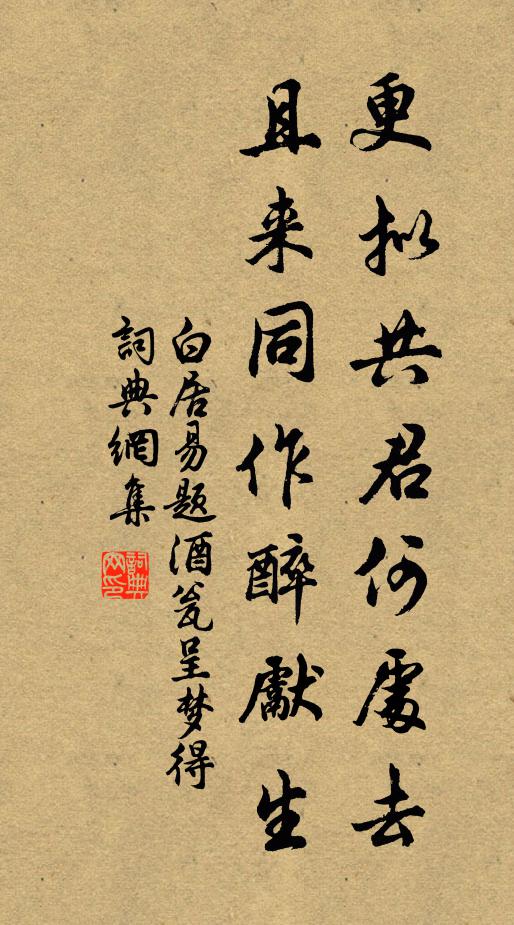 更拟共君何處去
且来同作醉獻生
白居易题酒瓮呈梦得
詞典網集
詞典
网印